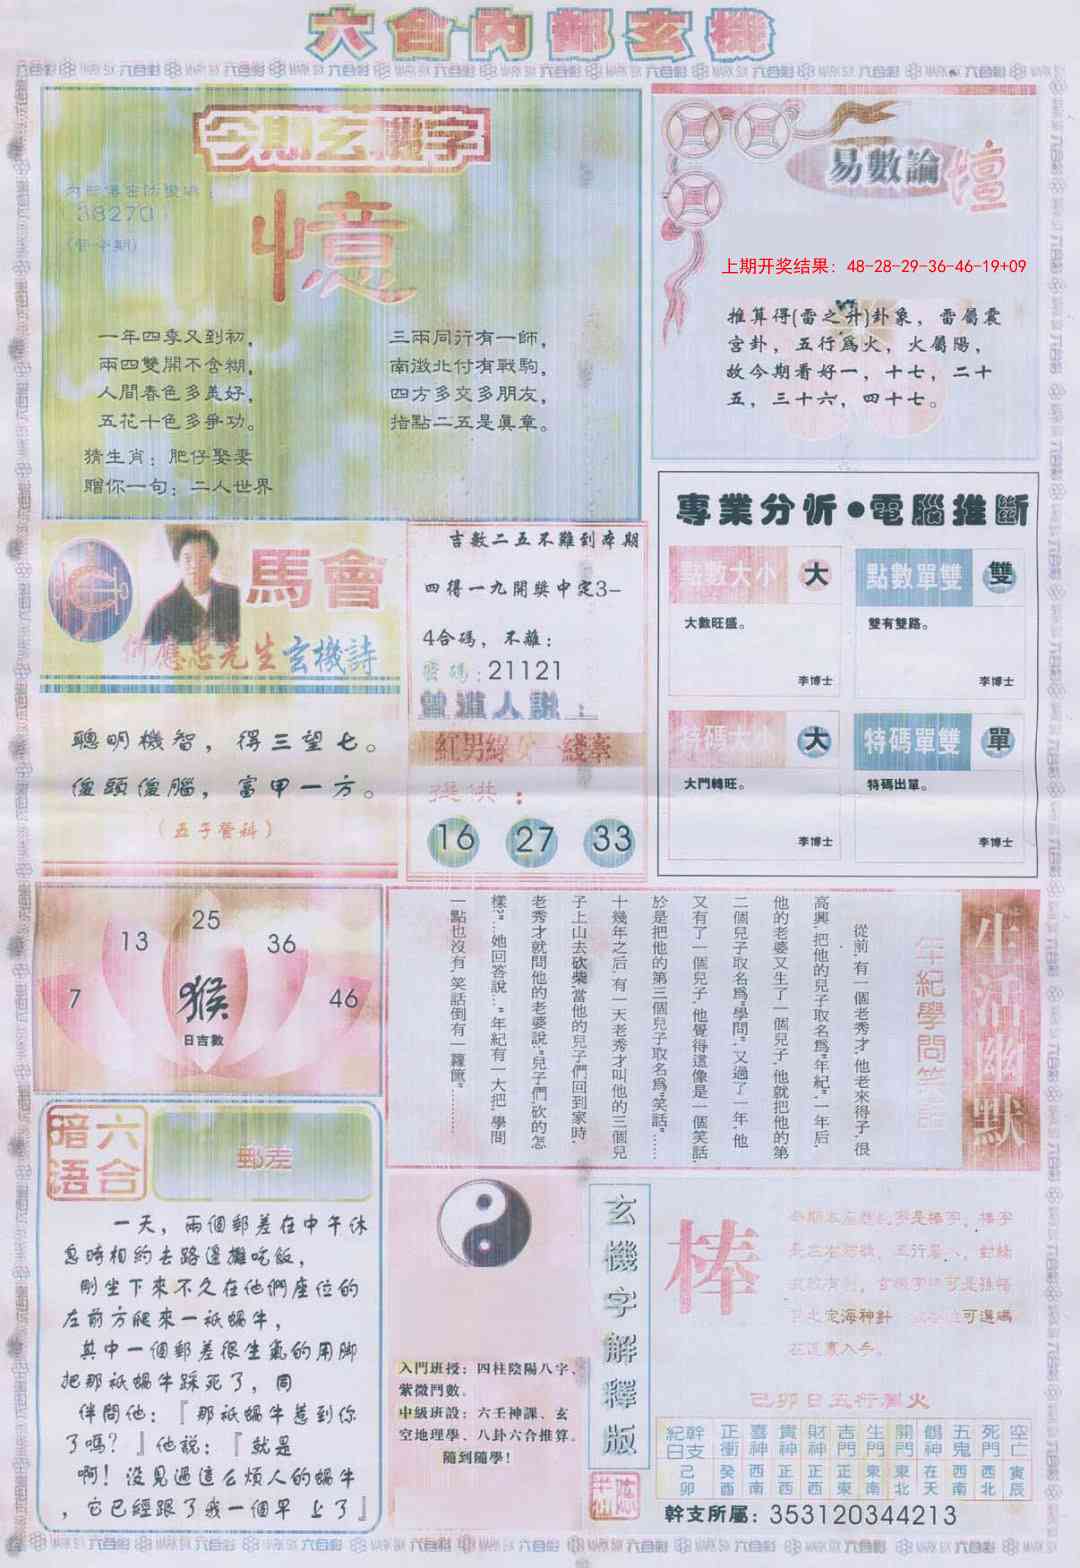 六合內部玄機
今期玄機字
38270
憶
一年四季又到初，
兩四雙開不含糊，
人間春色多美好，
五花十色多爭功。
三兩同行有一師，
南徵北付有戰駒，
四方多交多朋友，
指點二五是眞章。
猜生肖：肥仔娶妻
贈你一句：二人世界
易數論壇
上期开奖结果：48-28-29-36-46-19+09
推算得(雷之升)卦象，雷屬震
宮卦，五行爲火，火屬陽，
故今期看好一，十七，二十
五，三十六，四十七。
專業分析●電腦推斷
點數大小 大
大數旺盛。
李博士
點數單雙 雙
雙有雙路。
李博士
特碼大小 大
大門轉旺。
李博士
特碼單雙 單
特碼出單。
李博士
馬會
何應忠先生玄機詩
聰明機智，得三望七。
傻頭傻腦，富甲一方。
（五子登科）
吉數二五不難到本期
四得一九開獎中定3-
4合碼，不離：
密碼：21121
曾道人說：
紅男綠女一綫牽
提供：
16 27 33
7 13 25 36 46
猴
日吉數
生活幽默
年紀學問笑話
從前，有一個老秀才，他老來得子，很
高興，把他的兒子取名爲"年紀"，一年后，
他的老婆又生了一個兒子，他就把他的第
二個兒子取名爲"學問"，又過了一年，他
又有了一個兒子，他覺得這像是一個笑話，
於是把他的第三個兒子取名爲"笑話"……
十幾年之后，有一天老秀才叫他的三個兒
子上山去砍柴，當他的兒子們回到家時
老秀才就問他的老婆說："兒子們砍的怎
樣？"…她回答說…"年紀有一大把，學問
一點也沒有，笑話倒有一籮筐"………
六合暗语
郵差
一天，兩個郵差在中午休
息時相約去路邊攤吃飯，
剛坐下來不久在他們座位的
左前方爬來一祇蝸牛，
其中一個郵差很生氣的用脚
把那祇蝸牛踩死了，同
伴問他：『那祇蝸牛惹到你
了嗎？』他說：『就是
啊！沒見過這么煩人的蝸牛
，它已經跟了我一個早上了』
入門班授：四柱陰陽八字、
紫微鬥數。
中級班設：六壬神課、玄
空地理學、八卦六合推算。
隨到隨學！
玄機字解釋版
棒
定海神針
可選碼
在這裏入手。
己卯日五行屬火
幹支紀日 正衝 喜神 貴神 財神 吉門 生門 開門 鶴神 五鬼 死門 空亡
己卯 癸酉 西南 正西 正西 東南 東南 東北 在天 西南 西北 寅辰
幹支所屬：353120344213